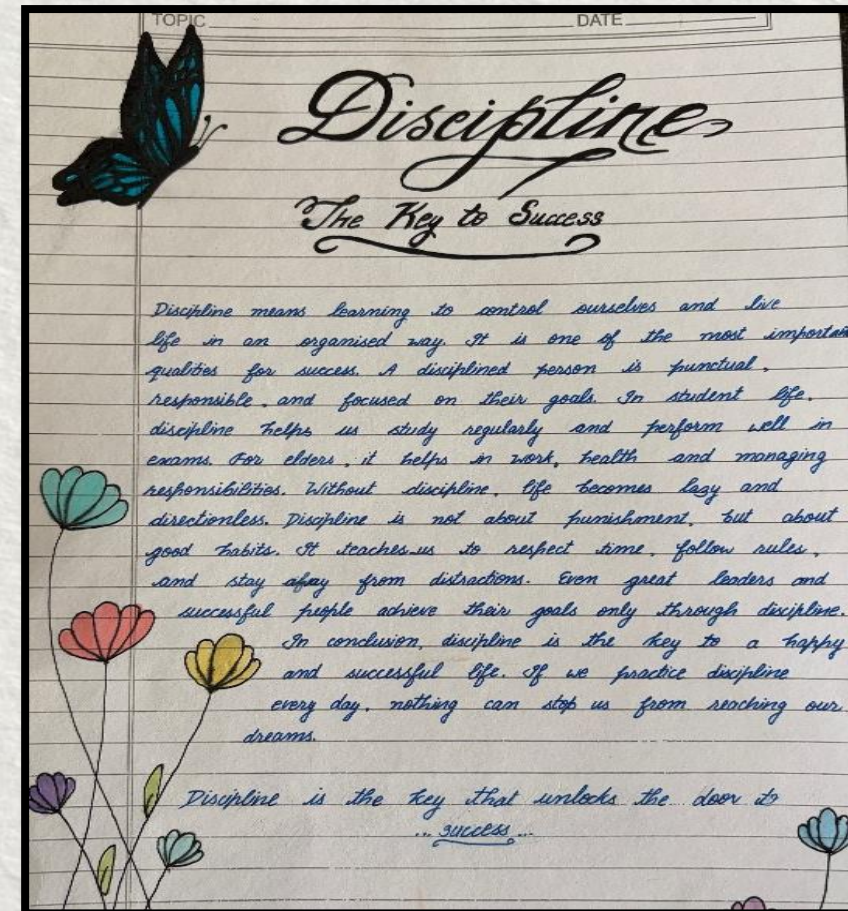 TOPIC DATE
Discipline
The Key to Success
Discipline means learning to control ourselves and live
life in an organised way. It is one of the most important
qualities for success. A disciplined person is punctual,
responsible, and focused on their goals. In student life,
discipline helps us study regularly and perform well in
exams. For elders, it helps in work, health and managing
responsibilities. Without discipline, life becomes lazy and
directionless. Discipline is not about punishment, but about
good habits. It teaches us to respect time, follow rules,
and stay away from distractions. Even great leaders and
successful people achieve their goals only through discipline.
In conclusion, discipline is the key to a happy
and successful life. If we practice discipline
every day, nothing can stop us from reaching our
dreams.
Discipline is the key that unlocks the door to
... success ...